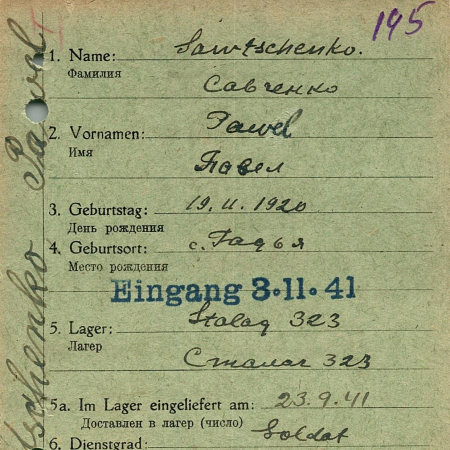 195
I
1. Name: Sawtschenko.
Фамилия Савченко
2. Vornamen: Pawel
Имя Павел
3. Geburtstag: 19. 11. 1920
День рождения
4. Geburtsort: с. Гадья
Место рождения
Eingang 3.11.41
5. Lager: Stalag 323
Лагер Сталаг 323
5a. Im Lager eingeliefert am: 23.9.41
Доставлен в лагер (число)
6. Dienstgrad: Soldat
tschenko Pawel